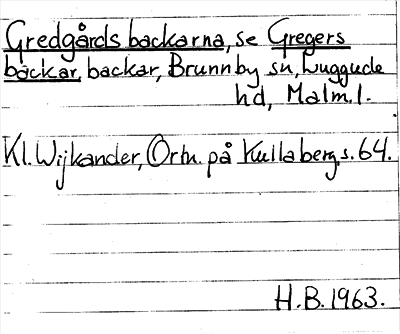 Gredgårds backarna, se Gregers
backar, backar, Brunnby sn, Luggude
hd, Malm. l.
Kl. Wijkander, Ortn. på Kullaberg s. 64.
H.B. 1963.